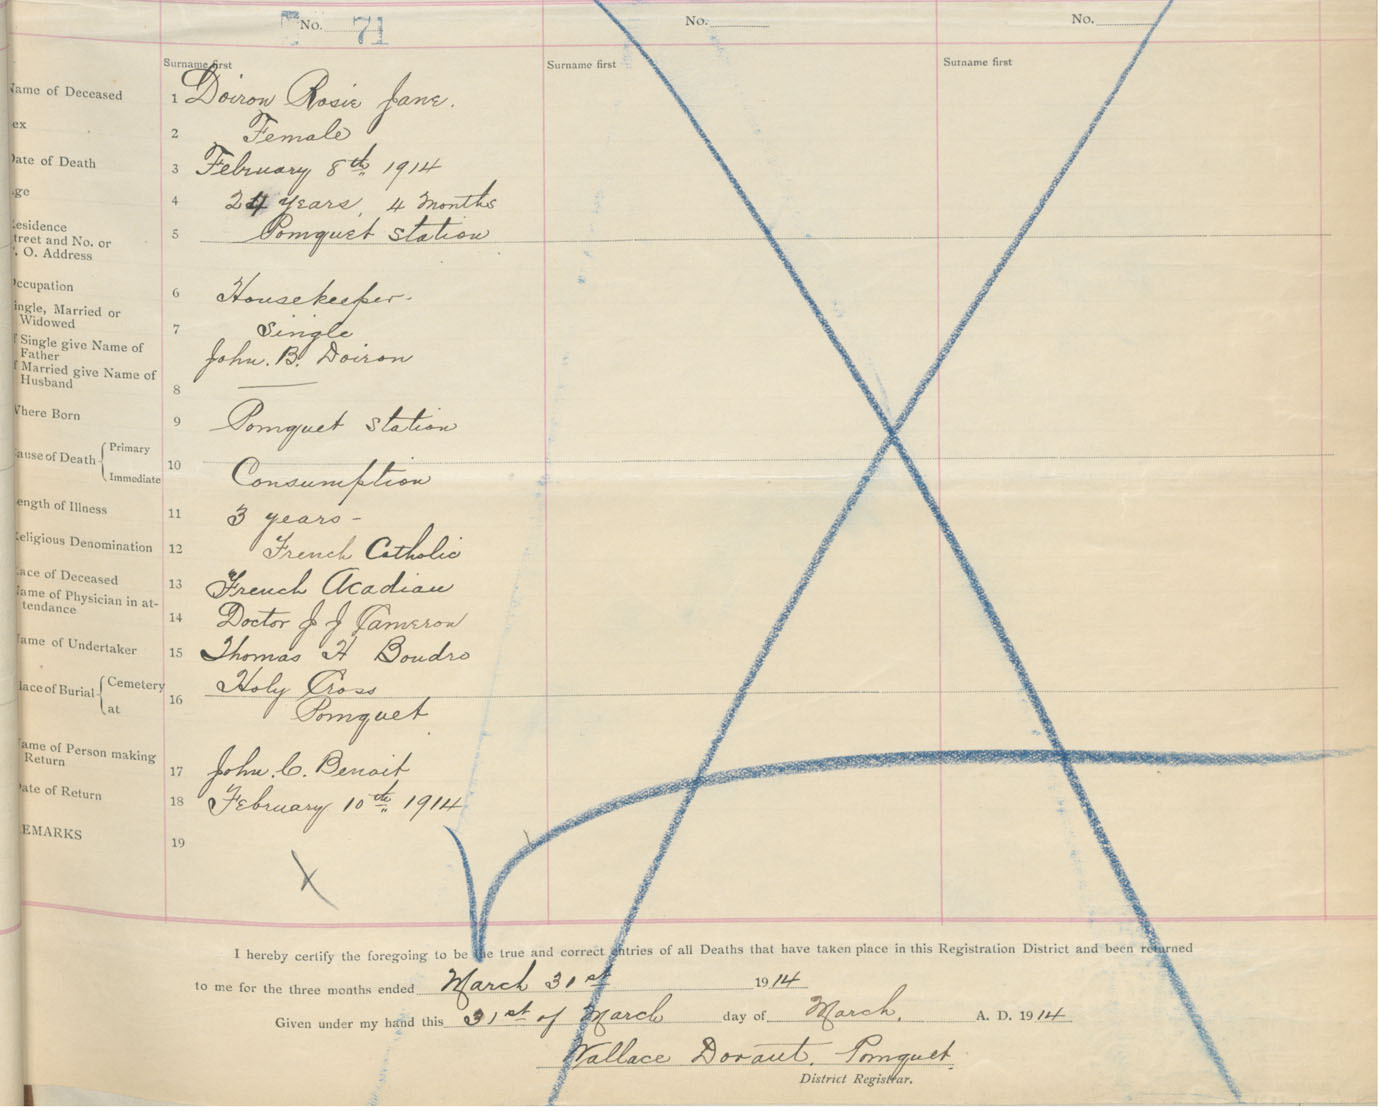 No. 71
No.
No.
Surname first
Surname first
Surname first
Name of Deceased 1 Doiron Rosie Jane.
ex 2 Female
Date of Death 3 February 8th 1914
ge 4 24 years, 4 months
esidence
treet and No. or 5 Pomquet station
. O. Address
ccupation 6 Housekeeper-
ingle, Married or
Widowed 7 Single
Single give Name of
Father John. B. Doiron
f Married give Name of
Husband 8
Where Born 9 Pomquet station
ause of Death Primary
Immediate 10 Consumption
ength of Illness 11 3 years -
eligious Denomination 12 French Catholic
ace of Deceased 13 French Acadian
ame of Physician in at-
tendance 14 Doctor J J Cameron
ame of Undertaker 15 Thomas H Boudro
lace of Burial Cemetery Holy Cross
at 16 Pomquet
ame of Person making
Return 17 John. C. Benoit
ate of Return 18 February 10th 1914
EMARKS 19
X
I hereby certify the foregoing to be the true and correct entries of all Deaths that have taken place in this Registration District and been returned
to me for the three months ended March 31st 1914
Given under my hand this 31st of March day of March. A. D. 1914
Wallace Dorant. Pomquet.
District Registrar.